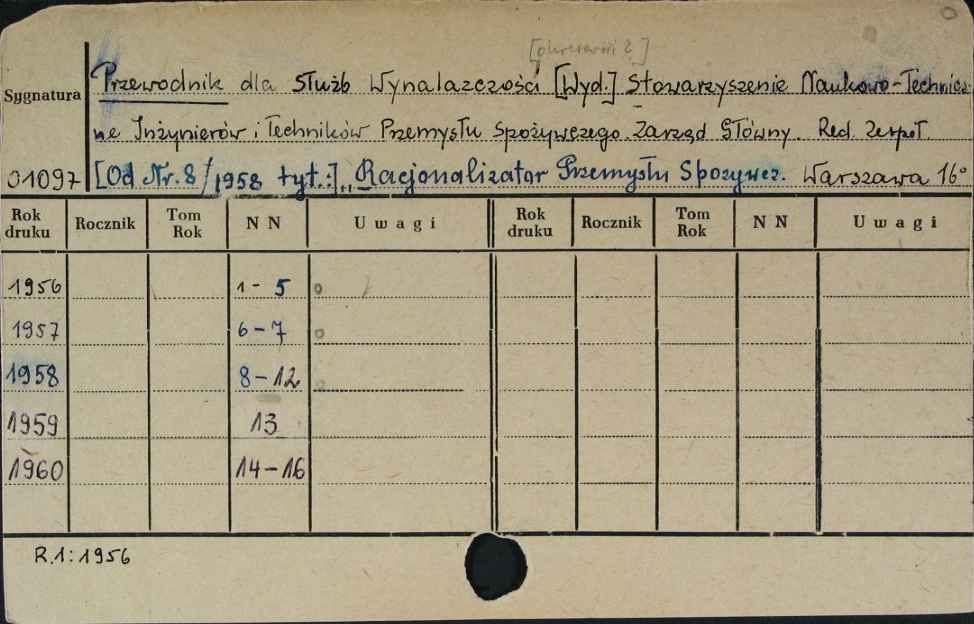 Przewodnik dla Służb Wynalazczości [Wyd.] Stowarzyszenie Naukowo-Technicz-
Sygnatura
ne Inżynierów i Techników Przemysłu Spożywczego. Zarząd Główny. Red. Zespół.
01097 [Od Nr. 8/1958 tyt.:] „Racjonalizator Przemysłu Spożywcz. Warszawa 16°
Rok druku Rocznik Tom Rok N N Uwagi Rok druku Rocznik Tom Rok N N Uwagi
1956 1-5
1957 6-7
1958 8-12
1959 13
1960 14-16
R.1:1956